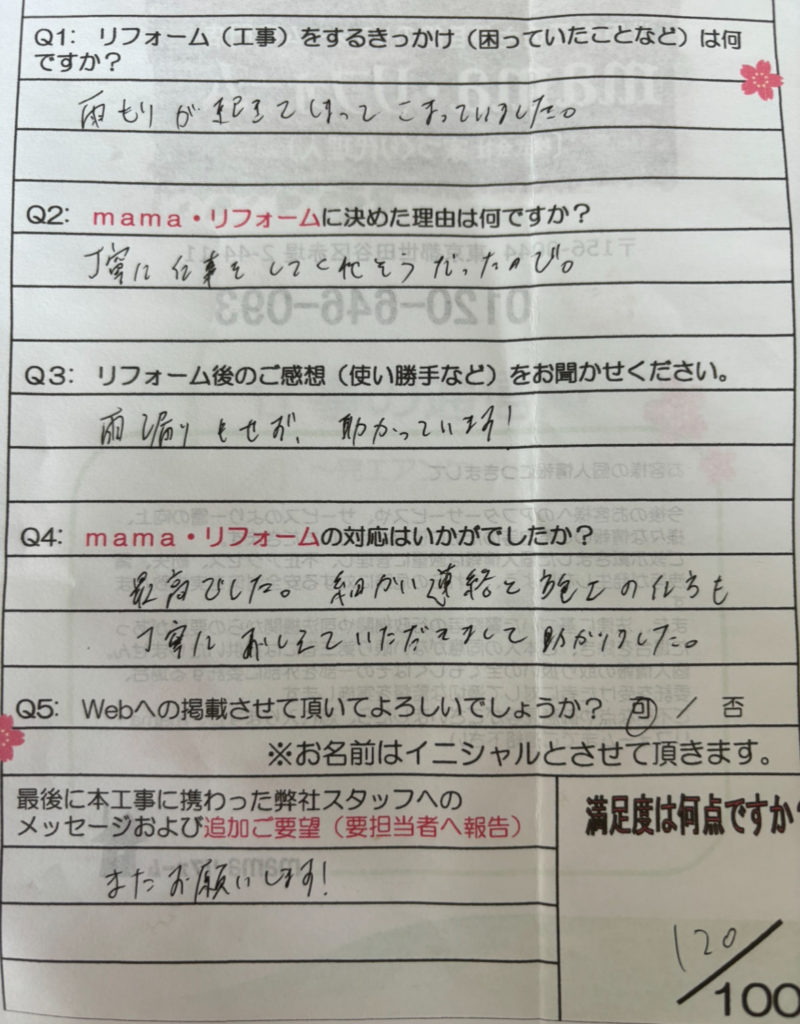 Q1: リフォーム（工事）をするきっかけ（困っていたことなど）は何
ですか？
雨もりが起きてしまって こまっていました。
Q2: mama・リフォームに決めた理由は何ですか？
丁寧に仕事をしてくれそうだったので。
Q3: リフォーム後のご感想（使い勝手など）をお聞かせください。
雨漏りもせず、助かっています!
Q4: mama・リフォームの対応はいかがでしたか？
最高でした。細かい連絡と施工の仕方も
丁寧におしえていただきまして助かりました。
Q5: Webへの掲載させて頂いてよろしいでしょうか？ 可 ／ 否
※お名前はイニシャルとさせて頂きます。
最後に本工事に携わった弊社スタッフへの
メッセージおよび追加ご要望（要担当者へ報告）
またお願いします!
満足度は何点ですか?
120/100